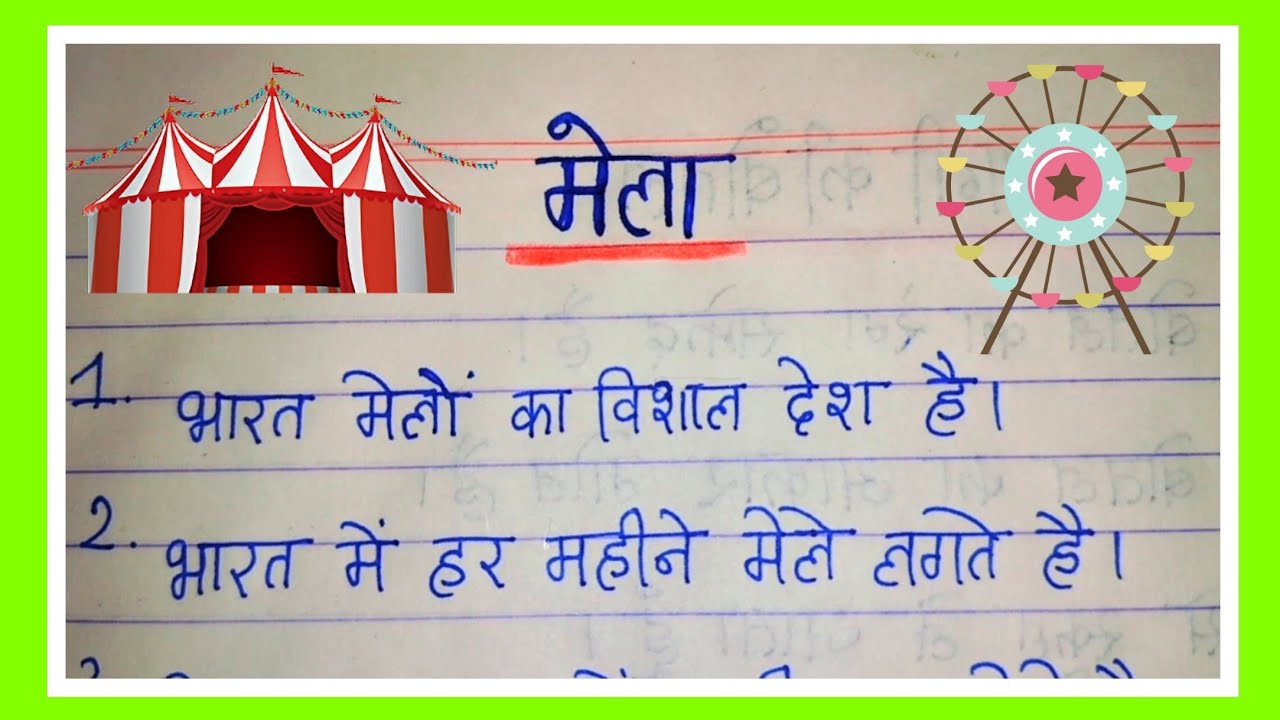 मेला
1. भारत मेलों का विशाल देश है।
2. भारत में हर महीने मेले लगते है।